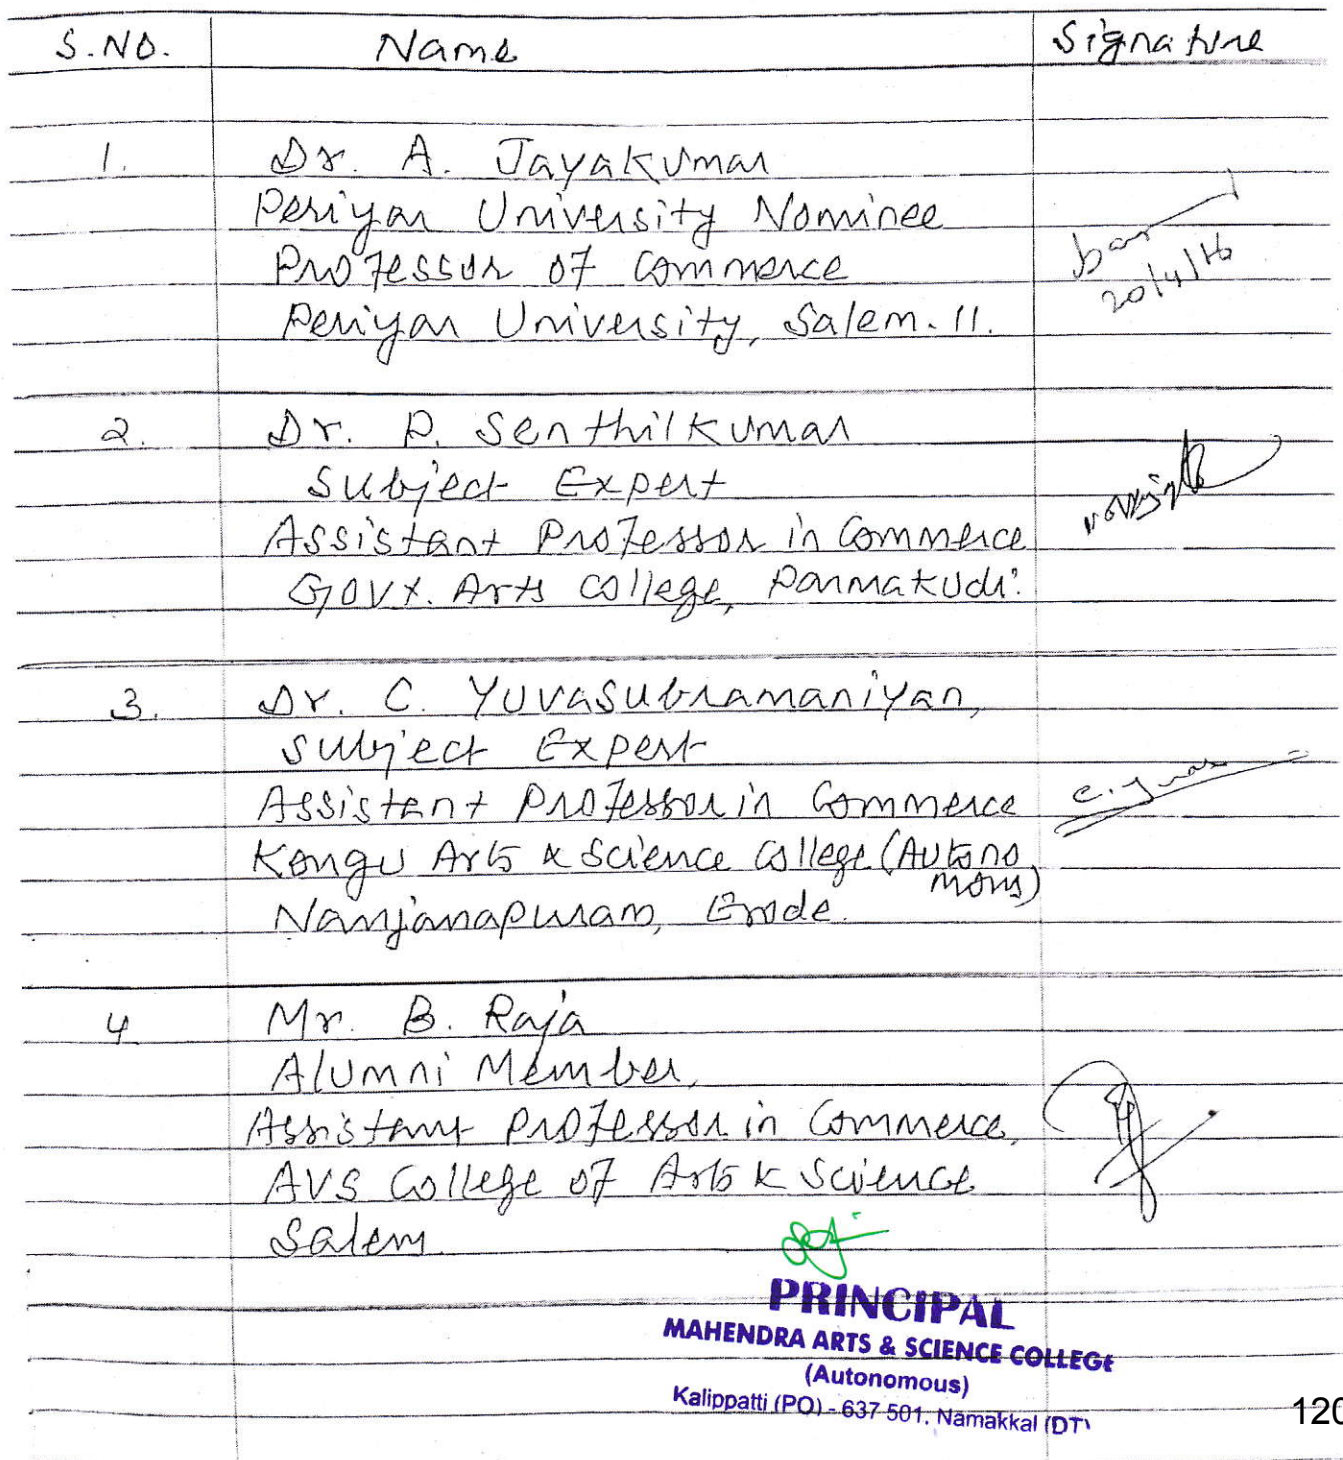 S.NO. Name Signature
1. Dr. A. Jayakumar
Periyar University Nominee
Professor of Commerce
Periyar University, Salem. 11.
20/4/16
2. Dr. P. Senthilkumar
Subject Expert
Assistant Professor in Commerce
Govt. Arts College, Parmakudi.
3. Dr. C. Yuvasubramaniyan,
Subject Expert
Assistant Professor in Commerce
Kongu Arts & Science College (Autono
mous)
Nanjanapuram, Erode.
4 Mr. B. Raja
Alumni Member,
Assistant Professor in Commerce,
AVS College of Arts & Science
Salem.
PRINCIPAL
MAHENDRA ARTS & SCIENCE COLLEGE
(Autonomous)
Kalippatti (PO) - 637 501, Namakkal (DT)
120